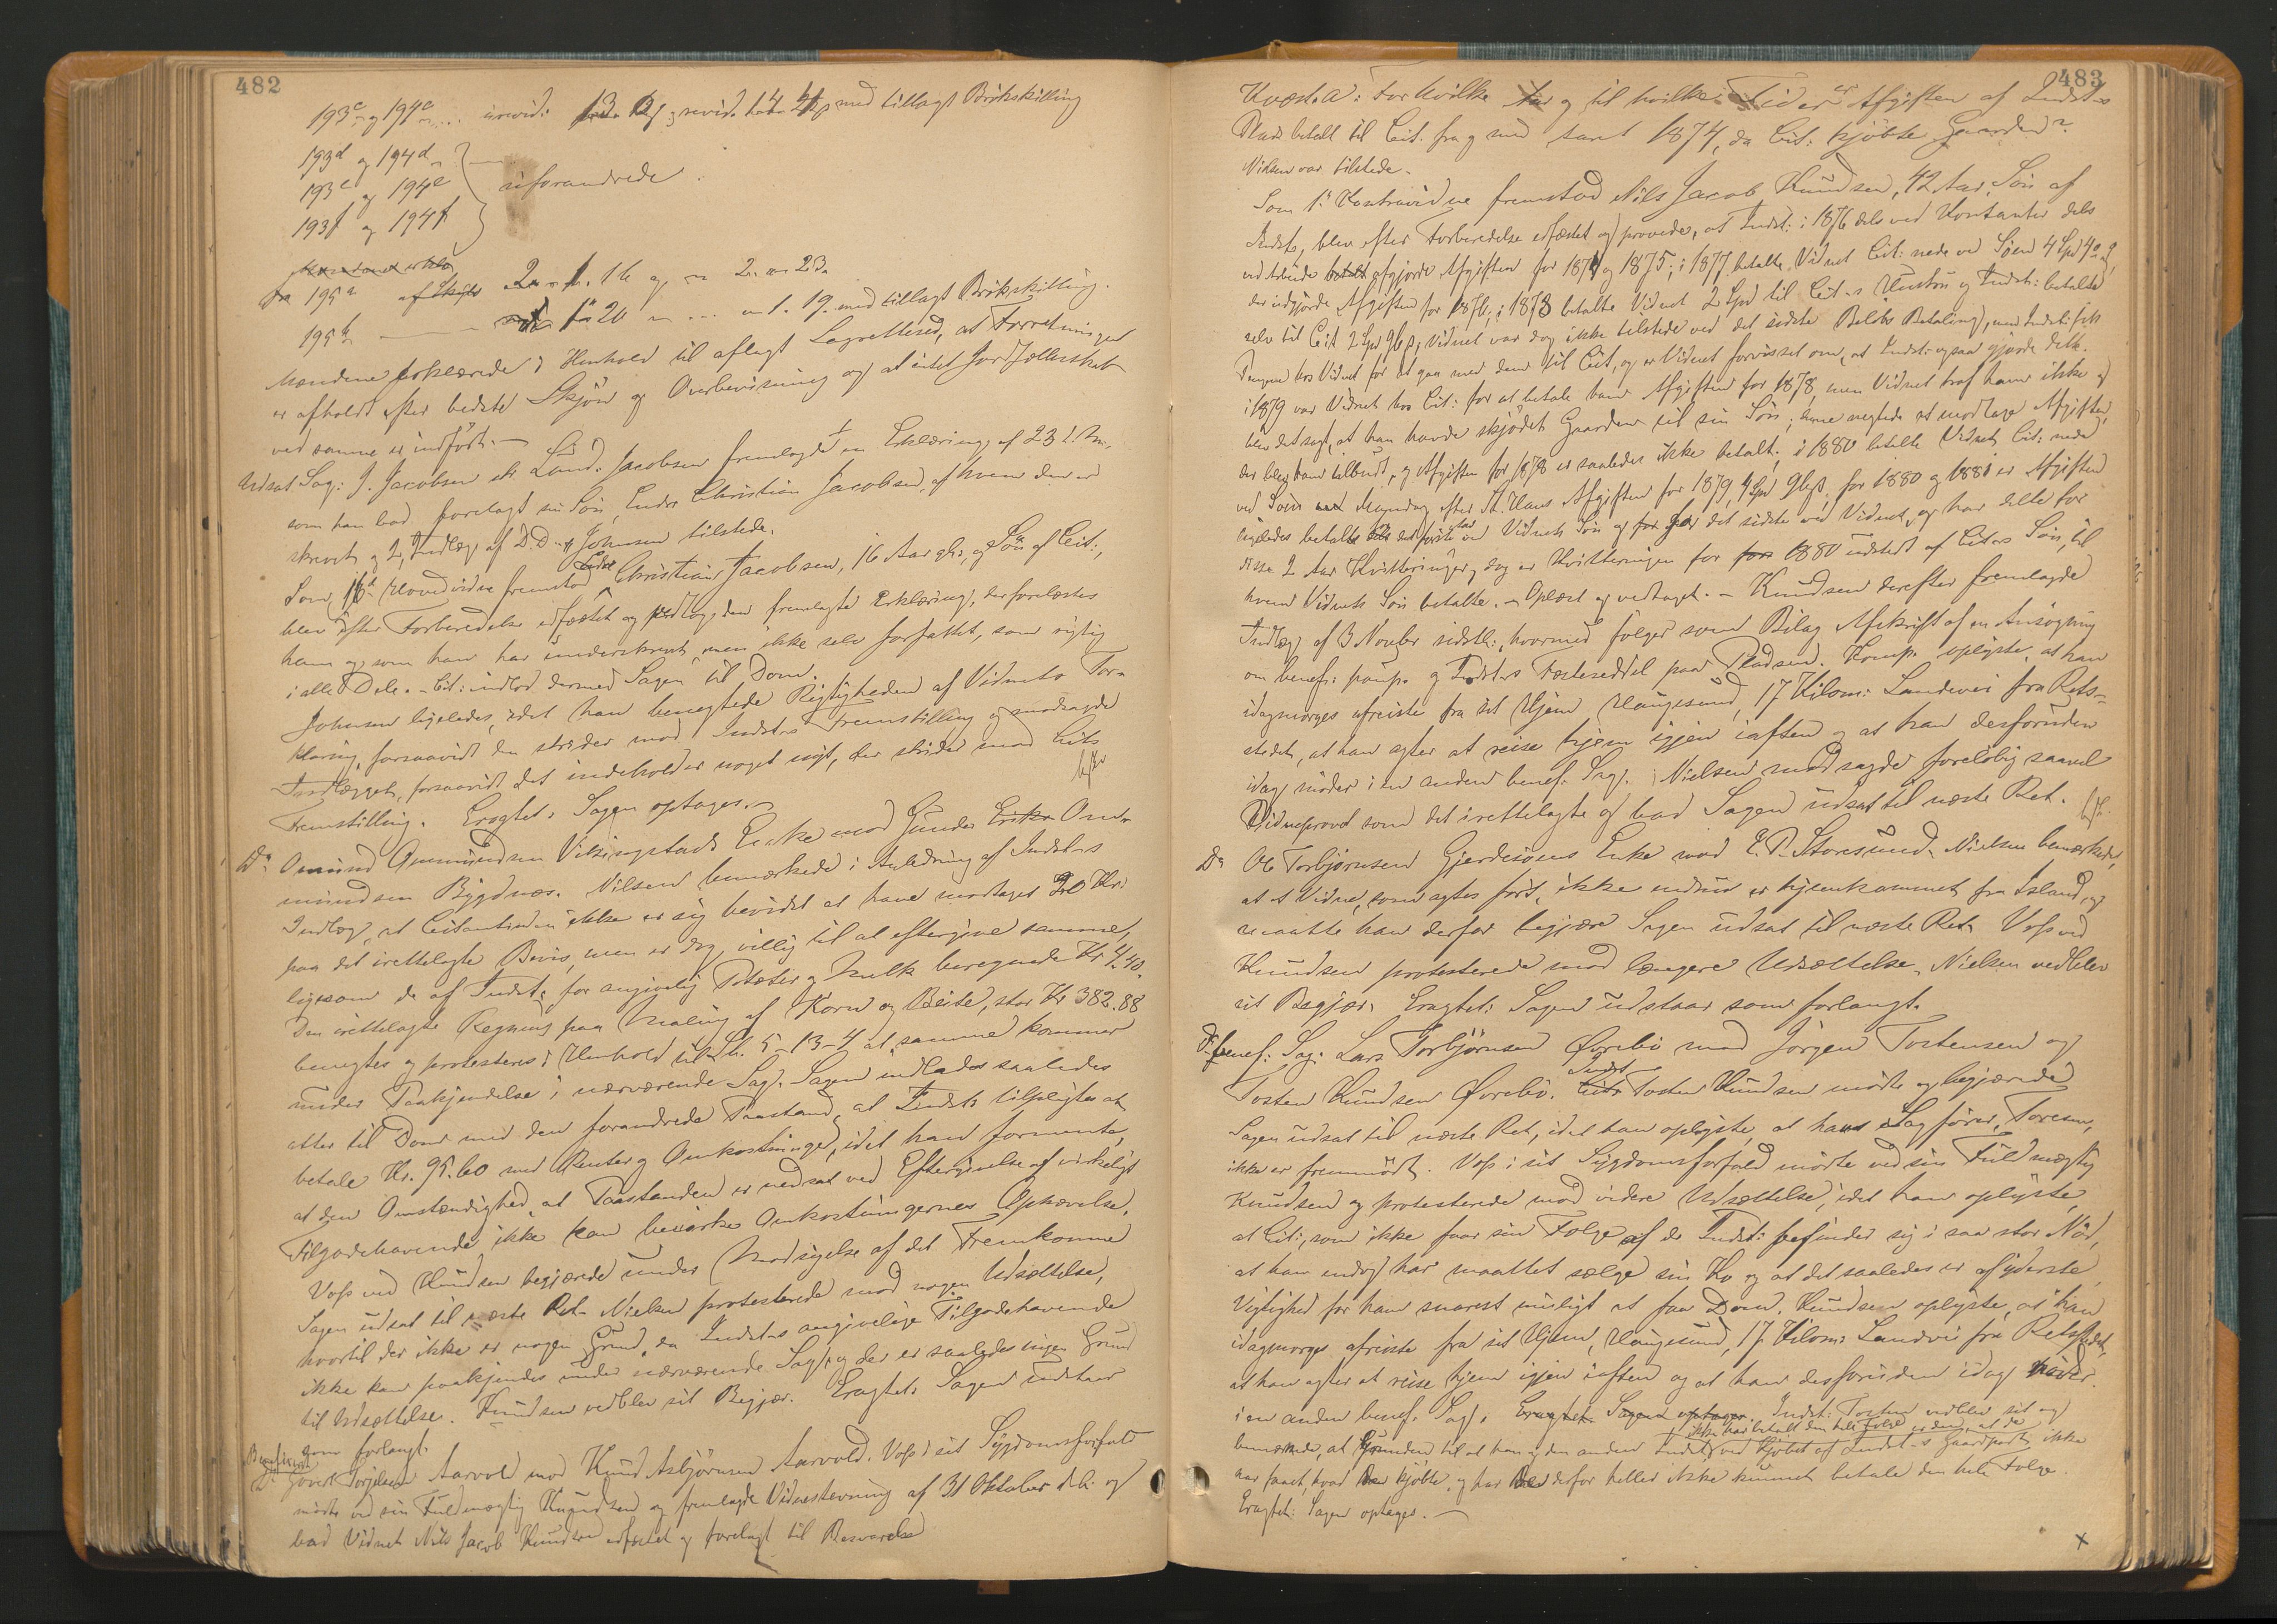 482
193c og 194c .... urevid: revid. med tillagt Brökskilling
193d og 194d
193e og 194e } uforandrede.
193f og 194f
195a 2 1. 16 og 2 23.
195b 20 1. 19. med tillagt Brökskilling.
Mændene erklærede i Henhold til aflagt Lagrettesed, at Forretningen
er afholdt efter bedste Skjön og Overbevisning og at intet Jordfællesskab
ved samme er indfört. —
Udsat Sag: J. Jacobsen Jacobsen fremlagde en Erklæring af 23 l. M.,
som han bad forelagt sin Sön, Endre Christian Jacobsen, af hvem den er
skrevet og 2, Indlæg af D.D. Johnsen tilstede.
Som Hovedvidne fremstod Endre Christian Jacobsen, 16 Aar gl., og Sön af Cit:,
blev efter Forberedelse edfæstet og vedtog den fremlagte Erklæring, der forelæstes
ham og som han har underskrevet, men ikke selv forfattet, som rigtig
i alle Dele. – Cit: indlod dermed Sagen til Dom.
Johnsen ligeledes, idet han benegtede Rigtigheden af Vidnets For-
klaring, forsaavidt den strider mod Indst.s Fremstilling og modsagde
Indlægget, forsaavidt det indeholder noget nyt, der strider mod Cits
Fremstilling. Eragtet: Sagen optages. –
Do Omund Ommundsen Vikingstads Enke mod Gunder Om-
mundsen Bygdnæs. Nilsen bemærkede i Anledning af Indst.s
Indlæg, at Citantinden ikke er sig bevidst at have modtaget Kr:
paa det irettelagte Bevis, men er dog villig til at eftergive samme,
ligesom de af Indst: for angivelig Poteter og Melk beregnede Kr 4,40.
Den irettelagte Regning paa Maling af Korn og Beite, stor Kr 382.88
benegtes og protesteres i Henhold til L. 5–13–4 at samme kommer
under Paakjendelse i nærværende Sag. Sagen indlades saaledes
atter til Dom med den forandrede Paastand, at Indst: tilpligtes at
betale Kr. 95.60 med Renter og Omkostninger, idet han formente,
at den Omstændighed, at Paastanden er nedsat ved Eftergivelse af virkeligt
Tilgodehavende ikke kan bevirke Omkostningernes Ophævelse.
Voss ved Knudsen begjærede under Modsigelse af det Fremkomne
Sagen udsat til næste Ret. Nielsen protesterede mod nogen Udsættelse,
hvortil der ikke er nogen Grund, da Indst.s angivelige Tilgodehavende
ikke kan paakjendes under nærværende Sag, og der er saaledes ingen Grund
til Udsættelse. Knudsen vedblev sit Begjær. Eragtet: Sagen udstaar
som forlangt.
Beneficeret
Do Govert Torjelsen Aarvold mod Knud Asbjörnsen Aarvold. Voss i sit Sygdomsforfald
mödte ved sin Fuldmægtig Knudsen og fremlagde Vidnestevning af 31 Oktober d.A. og
bad Vidnet Nils Jacob Knudsen edfæstet og forelagt til Besvarelse
483
Kvæst. a: For hvilke Aar og til hvilke Tider er Afgiften af Indst.s
Plads betalt til Cit. fra og med Aaret 1874, da Cit: kjöbte Gaarden?
Nielsen var tilstede.
Som 1ste Kontravidne fremstod Nils Jacob Knudsen, 42 Aar, Sön af
Indst., blev efter Forberedelse edfæstet og provede, at Indst: i 1876 dels ved Kontanter dels
ved Arbeide afgjorde Afgiften for 1874 og 1875; i 1877 betalte Vidnet Cit: nede ved Söen 4 Spd
der udgjorde Afgiften for 1876; i 1878 betalte Vidnet 2 Spd til Cit.s Hustru og Indst: betalte
selv til Cit 2 Spd; Vidnet var dog ikke tilstede ved det sidste Belöbs Betaling, men Indst: fik
Pengene hos Vidnet for at gaa med dem til Cit, og er Vidnet forvisset om, at Indst: ogsaa gjorde dette.
i 1879 var Vidnet hos Cit: for at betale ham Afgiften for 1878, men Vidnet traf ham ikke og
blev det sagt, at han havde skjödet Gaarden til sin Sön; denne negtede at modtage Afgiften,
der blev ham tilbudt, og Afgiften for 1878 er saaledes ikke betalt; i 1880 betalte Vidnet Cit: nede
ved Söen Mandag efter St. Hans Afgiften for 1879, 4 Spd for 1880 og 1881 er Afgiften
ligeledes betalt, det förste Aar ved Vidnets Sön og for det sidste ved Vidnet, og har dette for
disse 2 Aar Kvitteringer, dog er Kvitteringen for 1880 udstedt af Cit.s Sön, til
hvem Vidnets Sön betalte. – Oplæst og vedtaget. – Knudsen derefter fremlagde
Indlæg af 3 Novbr sidstl:, hvormed fölger som Bilag Afskrift af en Ansögning
om benef: paup. og Indst.s Fæsteseddel paa Pladsen. Komp. oplyste, at han
idagmorges afreiste fra sit Hjem Haugesund, 17 Kilom: Landevei fra Rets-
stedet, at han agter at reise hjem igjen iaften og at han desforuden
idag möder i en anden benef. Sag. Nielsen modsagde forelöbig saavel
Vidneprovet som det irettelagte og bad Sagen udsat til næste Ret.
Do Ole Torbjörnsen Gjerdesjöens Enke mod E. P. Storesund. Nielsen bemærkede,
at et Vidne, som agtes fört, ikke endnu er hjemkommet fra Island, og
maatte han derfor begjære Sagen udsat til næste Ret. Voss ved
Knudsen protesterede mod længere Udsættelse. Nielsen vedblev
sit Begjær. Eragtet: Sagen udstaar som forlangt.
Do benef: Sag: Lars Torbjörnsen Øvrebö mod Jörgen Tostensen og
Tosten Knudsen Øvrebö. Indst Tosten Knudsen mödte og begjærede
Sagen udsat til næste Ret, idet han oplyste, at hans Sagförer, Foresen,
ikke er fremmödt. Voss i sit Sygdomsforfald mödte ved sin Fuldmægtig
Knudsen og protesterede mod videre Udsættelse, idet han oplyste,
at Cit:, som ikke faar sin Folge af de Indst: befinder sig i saa stor Nöd,
at han endog har maattet sælge sin Ko og at det saaledes er af yderste
Vigtighed for ham snarest muligt at faa Dom. Knudsen oplyste, at han
idagmorges afreiste fra sit Hjem, Haugesund, 17 Kilom: Landevei fra Retsstedet,
at han agter at reise hjem igjen iaften og at han desforuden idag möder
i en anden benef. Sag. Eragtet: Sagen optages. Indst: Tosten vedblev sit og
bemærkede, at Grunden til at han og den anden Indst, ikke har betalt den hele Folge er den, at de ved Kjöbet af Indst.s Gaardpart, ikke
har faaet, hvad de kjöbte, og har de derfor heller ikke kunnet betale den hele Folge
Eragtet: Sagen optages. —
x